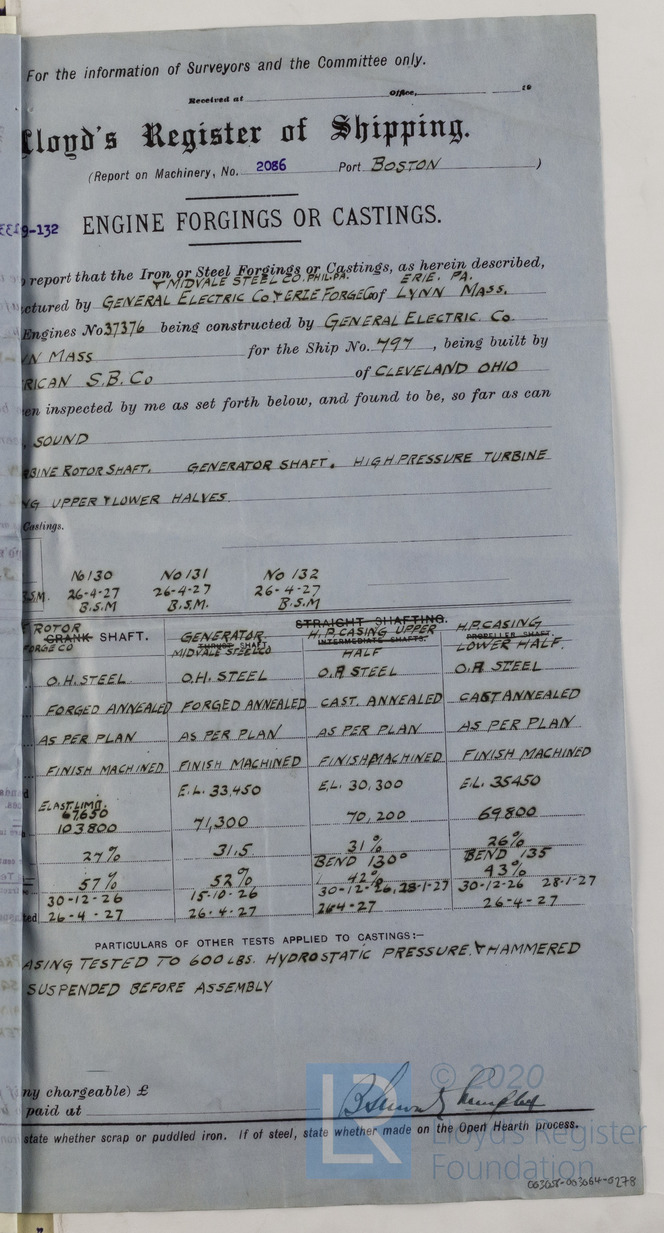 For the information of Surveyors and the Committee only.
Received at Office, 19
Lloyd's Register of Shipping.
(Report on Machinery, No. 2086 Port BOSTON )
9-132
ENGINE FORGINGS OR CASTINGS.
report that the Iron or Steel Forgings or Castings, as herein described,
& MIDVALE STEEL CO. PHILPA. ERIE. PA.
ctured by GENERAL ELECTRIC CO & ERIE FORGE Co of LYNN MASS.
Engines No 37376 being constructed by GENERAL ELECTRIC. CO.
N MASS for the Ship No. 797 , being built by
RICAN S.B. CO of CLEVELAND OHIO
en inspected by me as set forth below, and found to be, so far as can
, SOUND
BINE ROTOR SHAFT. GENERATOR SHAFT. HIGH PRESSURE TURBINE
NG UPPER & LOWER HALVES.
Castings.
No 130 No 131 No 132
B.S.M. 26-4-27 26-4-27 26-4-27
B.S.M B.S.M. B.S.M
STRAIGHT SHAFTING.
ROTOR GENERATOR H.P. CASING UPPER H.P. CASING
CRANK SHAFT. THRUST SHAFT INTERMEDIATE SHAFTS. PROPELLER SHAFT.
FORGE CO MIDVALE STEEL CO HALF LOWER HALF.
O.H. STEEL. O.H. STEEL O.H STEEL O.H STEEL
FORGED ANNEALED FORGED ANNEALED CAST. ANNEALED CAST ANNEALED
AS PER PLAN AS PER PLAN AS PER PLAN AS PER PLAN
FINISH MACHINED FINISH MACHINED FINISH MACHINED FINISH MACHINED
ELAST LIMIT. E.L. 33,450 E.L. 30,300 E.L. 35450
67650
103800 71,300 70,200 69800
27% 31.5 31% 26%
BEND 130° BEND 135
57% 52% 42% 43%
30-12-26 15-10-26 30-12-26, 28-1-27 30-12-26 28-1-27
ed 26-4-27 26-4-27 264-27 26-4-27
PARTICULARS OF OTHER TESTS APPLIED TO CASTINGS:—
ASING TESTED TO 600 LBS. HYDROSTATIC PRESSURE. & HAMMERED
SUSPENDED BEFORE ASSEMBLY
ny chargeable) £
paid at
state whether scrap or puddled iron. If of steel, state whether made on the Open Hearth process.
LR © 2020
Lloyd's Register
Foundation
003058-003064-0278